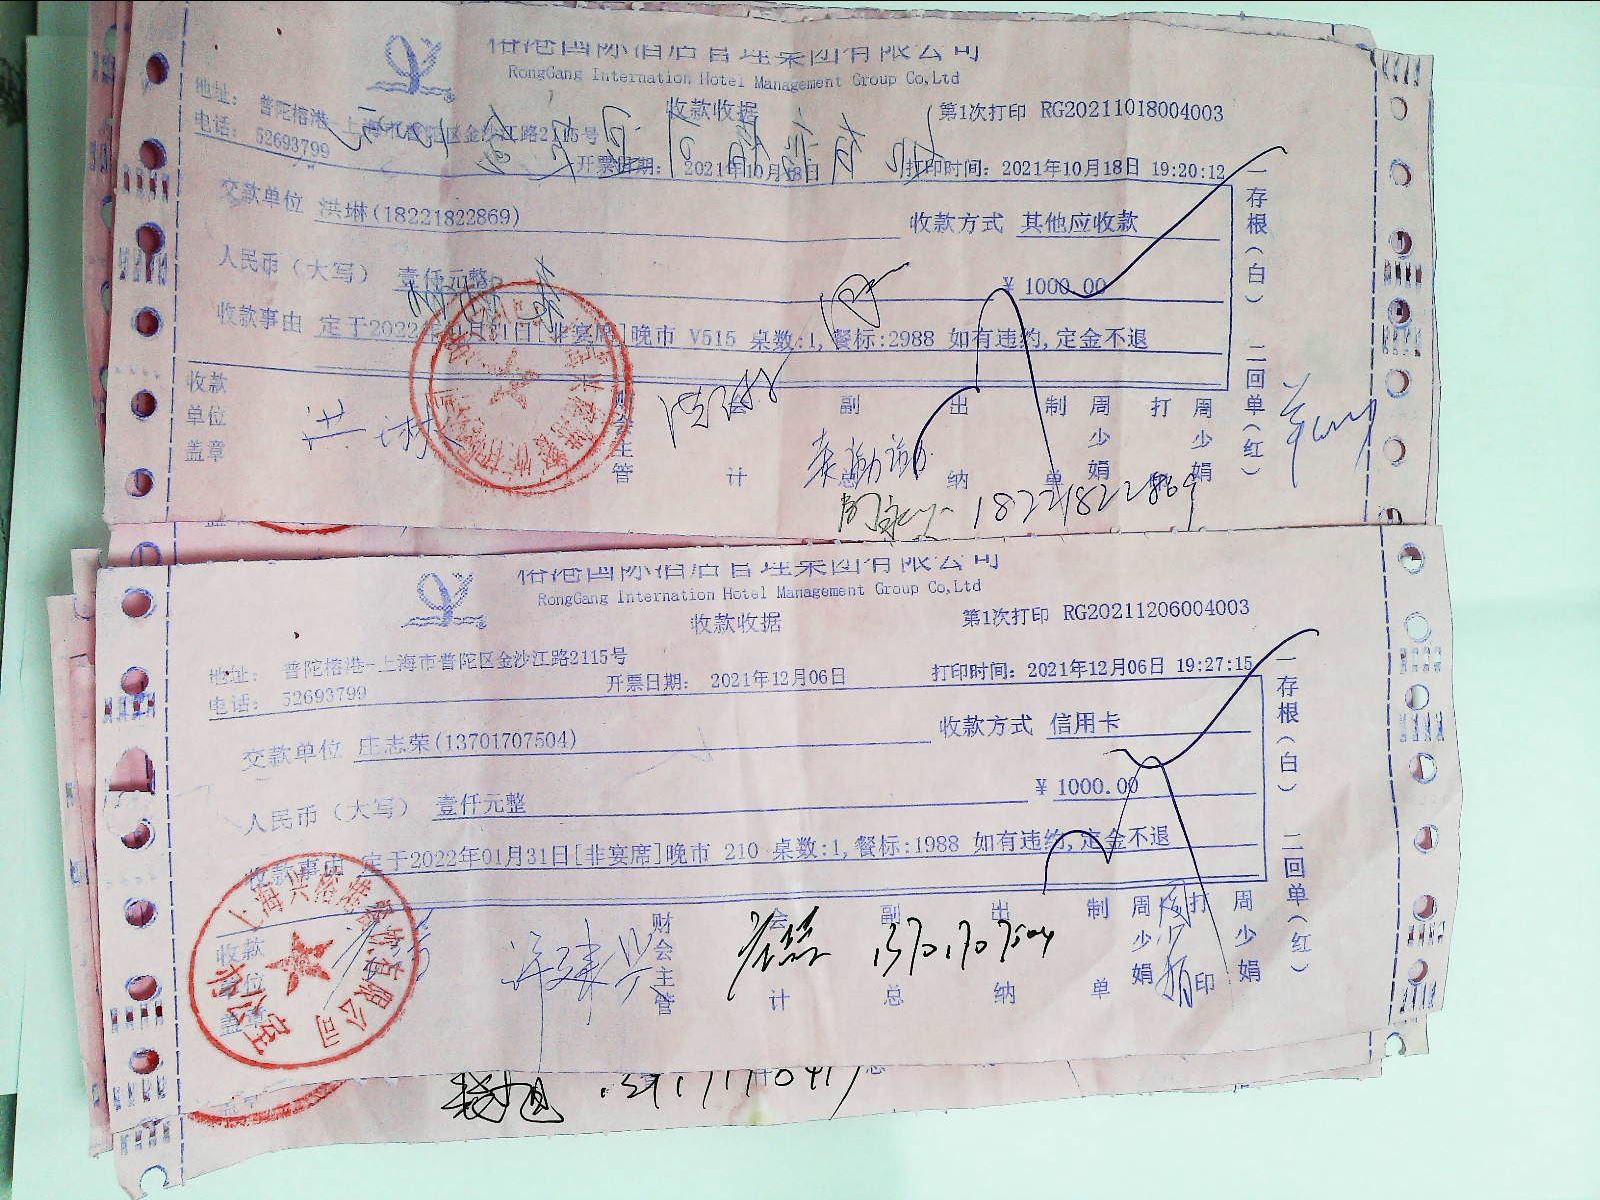 榕港国际酒店管理集团有限公司
RongGang Internation Hotel Management Group Co,Ltd
收款收据
第1次打印 RG20211018004003
地址: 普陀榕港-上海市普陀区金沙江路2115号
电话: 52693799
开票日期: 2021年10月18日
打印时间: 2021年10月18日 19:20:12
交款单位 洪琳(18221822869)
收款方式 其他应收款
人民币（大写） 壹仟元整
¥ 1000.00
收款事由 定于2022年01月31日[非宴席]晚市 V515 桌数:1,餐标:2988 如有违约,定金不退
一存根（白） 二回单（红）
收款单位盖章
洪琳
财会主管
会计
副总
出纳
制单 周少娟
打印 周少娟
18221822869
榕港国际酒店管理集团有限公司
RongGang Internation Hotel Management Group Co,Ltd
收款收据
第1次打印 RG20211206004003
地址: 普陀榕港-上海市普陀区金沙江路2115号
电话: 52693799
开票日期: 2021年12月06日
打印时间: 2021年12月06日 19:27:15
交款单位 庄志荣(13701707504)
收款方式 信用卡
人民币（大写） 壹仟元整
¥ 1000.00
收款事由 定于2022年01月31日[非宴席]晚市 210 桌数:1,餐标:1988 如有违约,定金不退
一存根（白） 二回单（红）
收款单位盖章
财会主管
会计
副总
13701707504
出纳
制单 周少娟
打印 周少娟